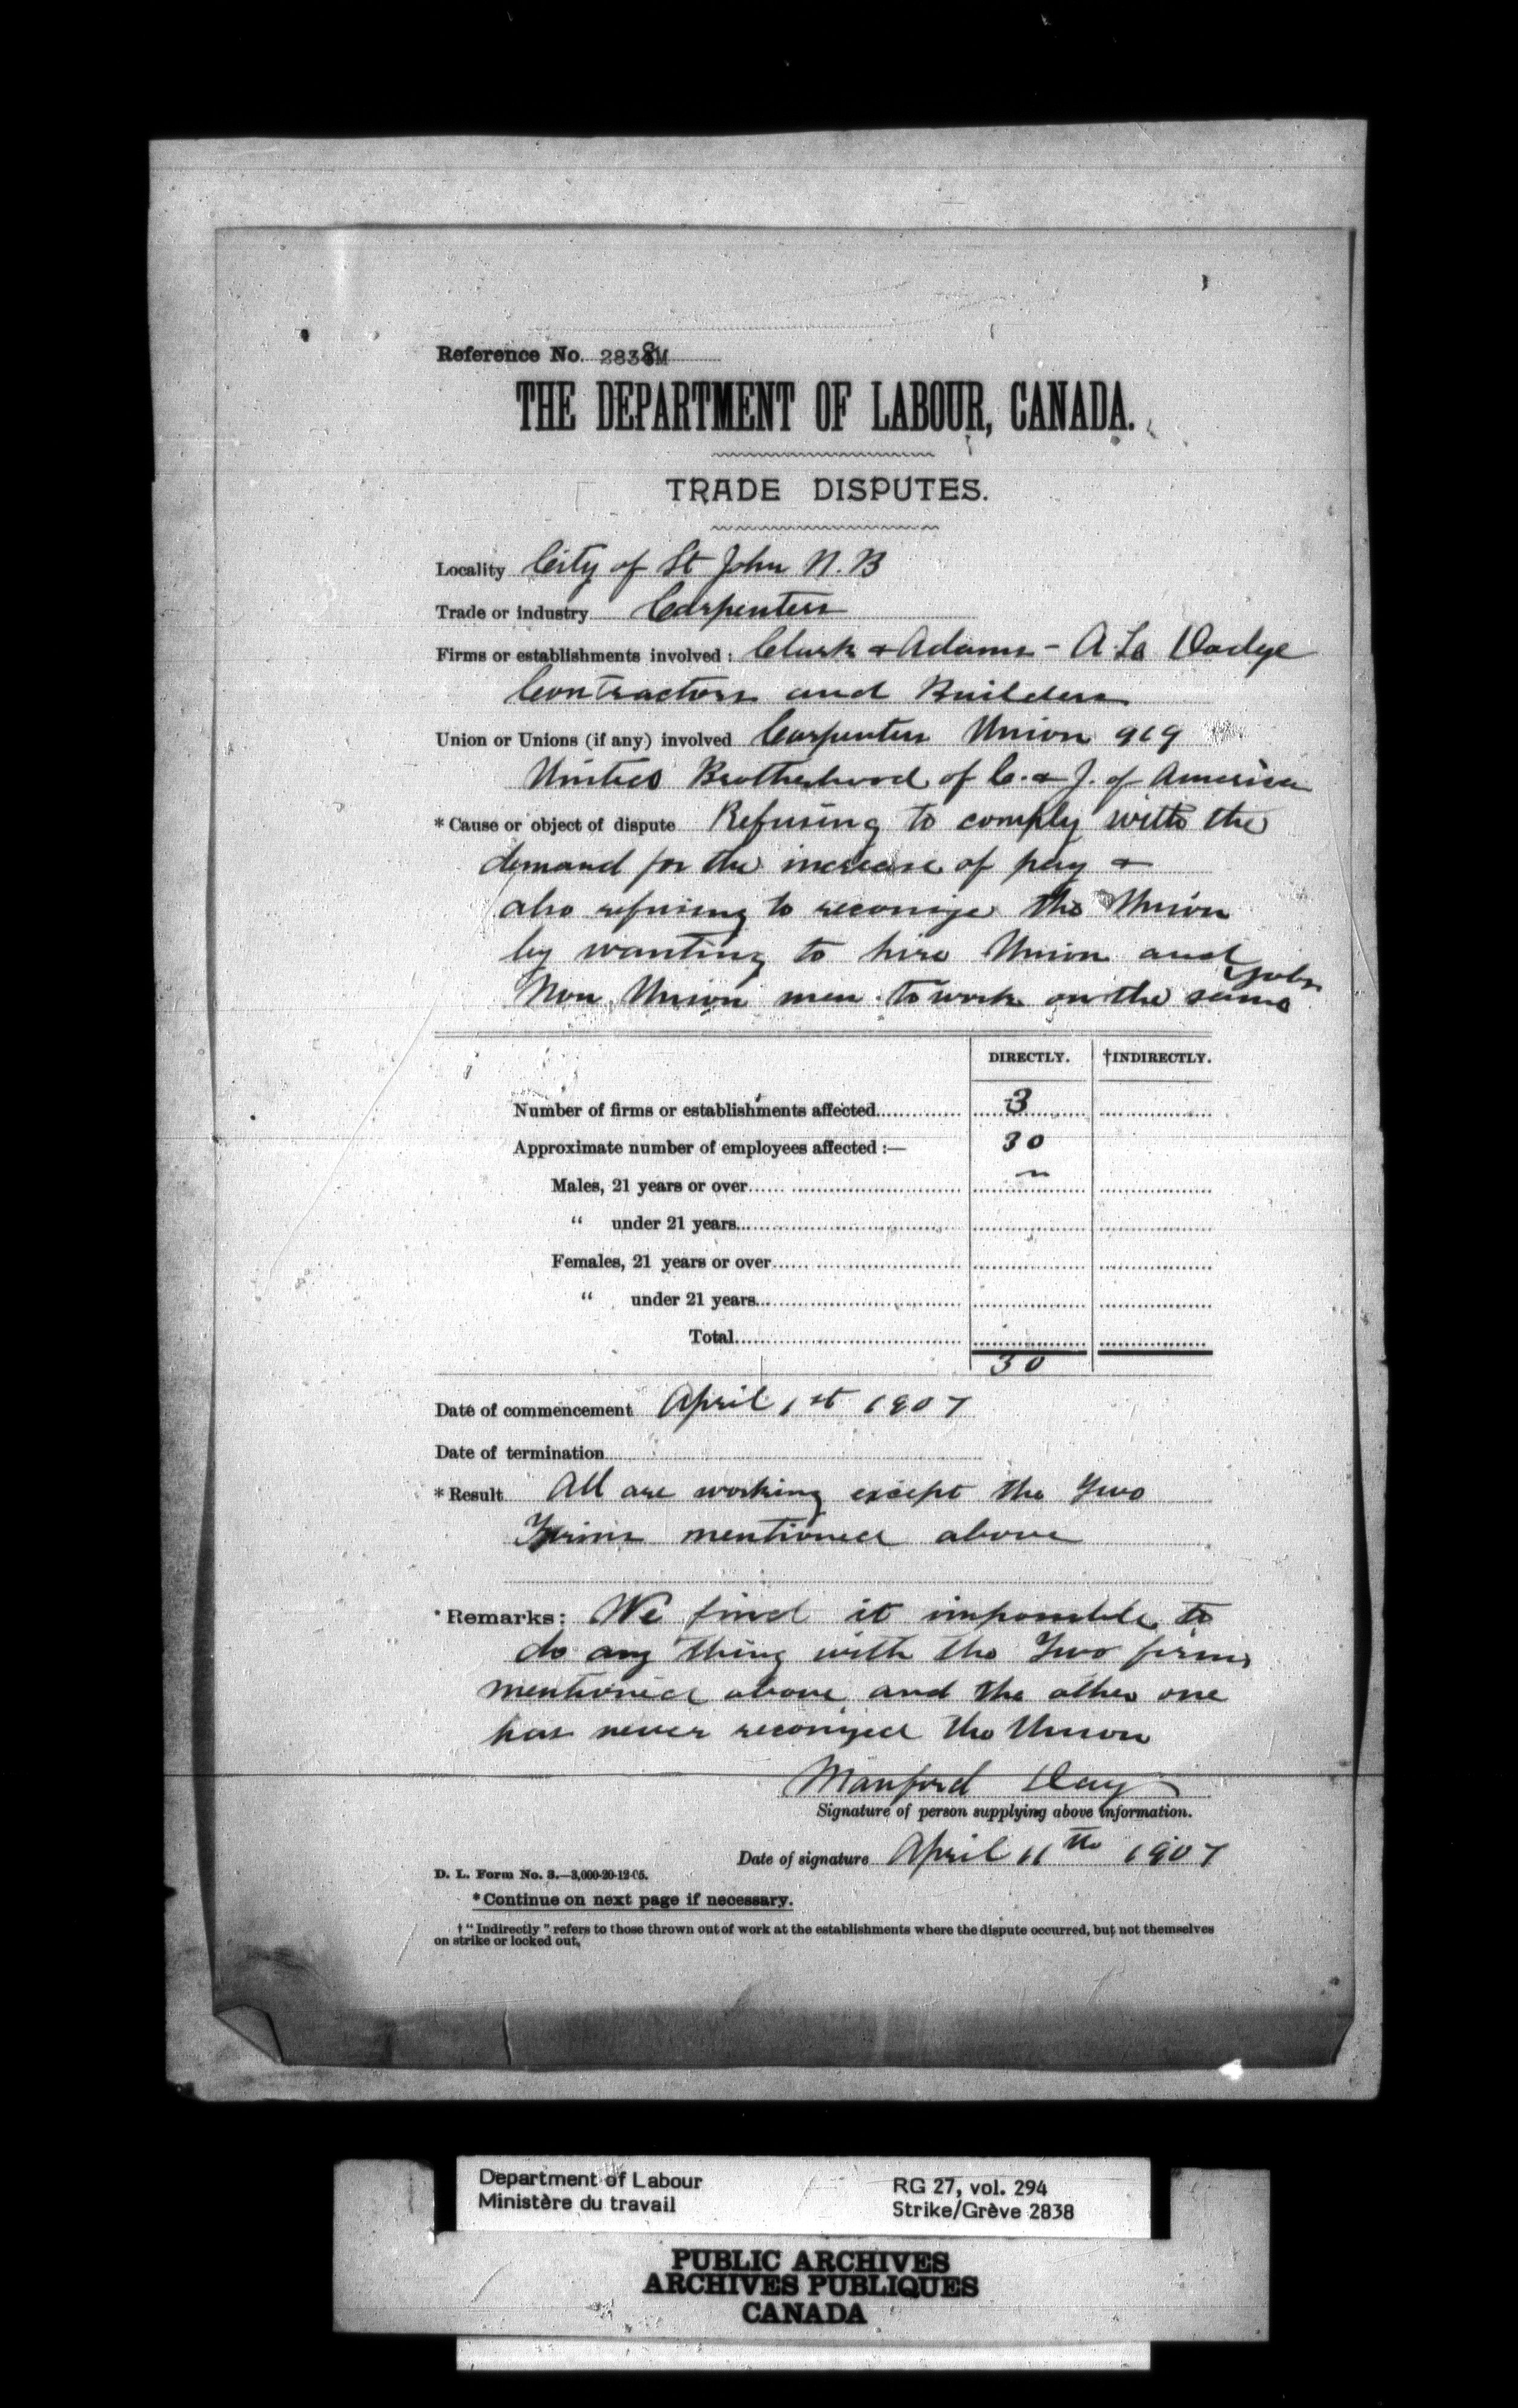 Reference No. 2838M
THE DEPARTMENT OF LABOUR, CANADA.
TRADE DISPUTES.
Locality City of St John N.B
Trade or industry Carpenters
Firms or establishments involved: Clark & Adams - A. La Dodge
Contractors and Builders
Union or Unions (if any) involved Carpenters Union 919
United Brotherhood of C. & J. of America
* Cause or object of dispute Refusing to comply with the
demand for the increase of pay &
also refusing to reconize the Union
by wanting to hire Union and
Non Union men to work on the same jobs
DIRECTLY. †INDIRECTLY.
Number of firms or establishments affected 3
Approximate number of employees affected :— 30
Males, 21 years or over
" under 21 years
Females, 21 years or over
" under 21 years
Total
30
Date of commencement April 1st 1907
Date of termination
* Result All are working except the Two
Firms mentioned above
* Remarks: We find it impossible to
do any thing with the Two firms
mentioned above and the other one
has never reconized the Union
Manford Day
Signature of person supplying above information.
Date of signature April 11th 1907
D. L. Form No. 3.—3,000-20-12-05.
* Continue on next page if necessary.
† "Indirectly" refers to those thrown out of work at the establishments where the dispute occurred, but not themselves
on strike or locked out.
Department of Labour
Ministère du travail
RG 27, vol. 294
Strike/Grève 2838
PUBLIC ARCHIVES
ARCHIVES PUBLIQUES
CANADA